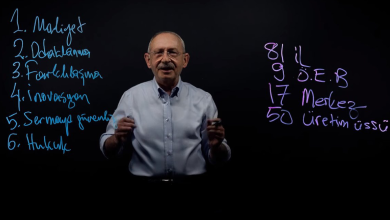 1. Maliyet
2. Odaklanma
3. Farklılaşma
4. İnovasyon
5. Sermaye güvenliği
6. Hukuk
81 il
9 Ö.E.B
17 Merkez
50 üretim üssü